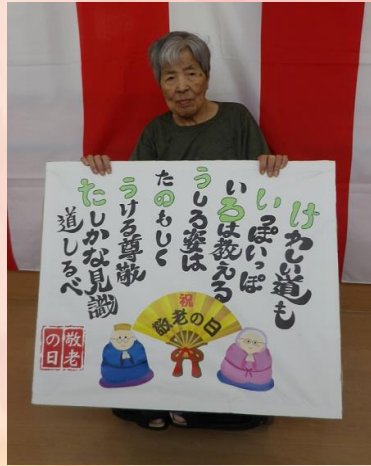 けわしい道も
いっぽいっぽ
いろは教える
うしろ姿は
たのもしく
うける尊敬
たしかな見識
道しるべ
祝
敬老の日
敬老
の日